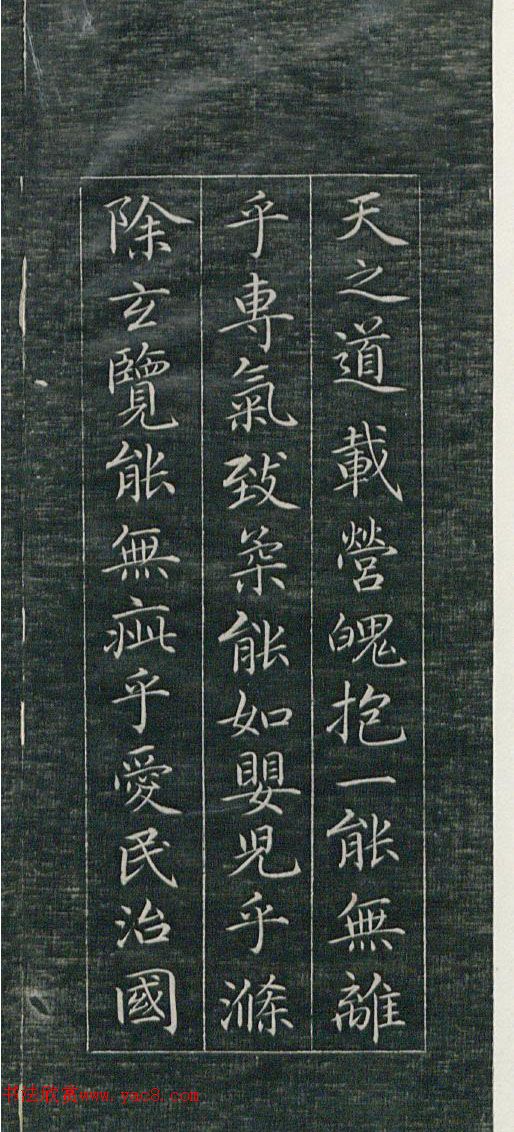 天之道 載營魄抱一能無離
乎專氣致柔能如嬰児乎滌
除玄覽能無疵乎愛民治國
书法欣赏www.yac8.com